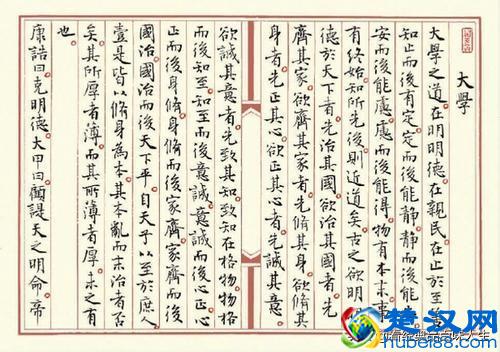 大學
大學之道在明明德在親民在止於至善
知止而後有定定而後能靜靜而後能
安而後能慮慮而後能得物有本末事
有終始知所先後則近道矣古之欲明
德於天下者先治其國欲治其國者先
齊其家欲齊其家者先脩其身欲脩其
身者先正其心欲正其心者先誠其意
欲誠其意者先致其知致知在格物物格
而後知至知至而後意誠意誠而後心正心
正而後身脩身脩而後家齊家齊而後
國治國治而後天下平自天子以至於庶人
壹是皆以脩身為本其本亂而末治者否
矣其所厚者薄而其所薄者厚未之有
也
康誥曰克明德大甲曰顧諟天之明命帝
楚汉网